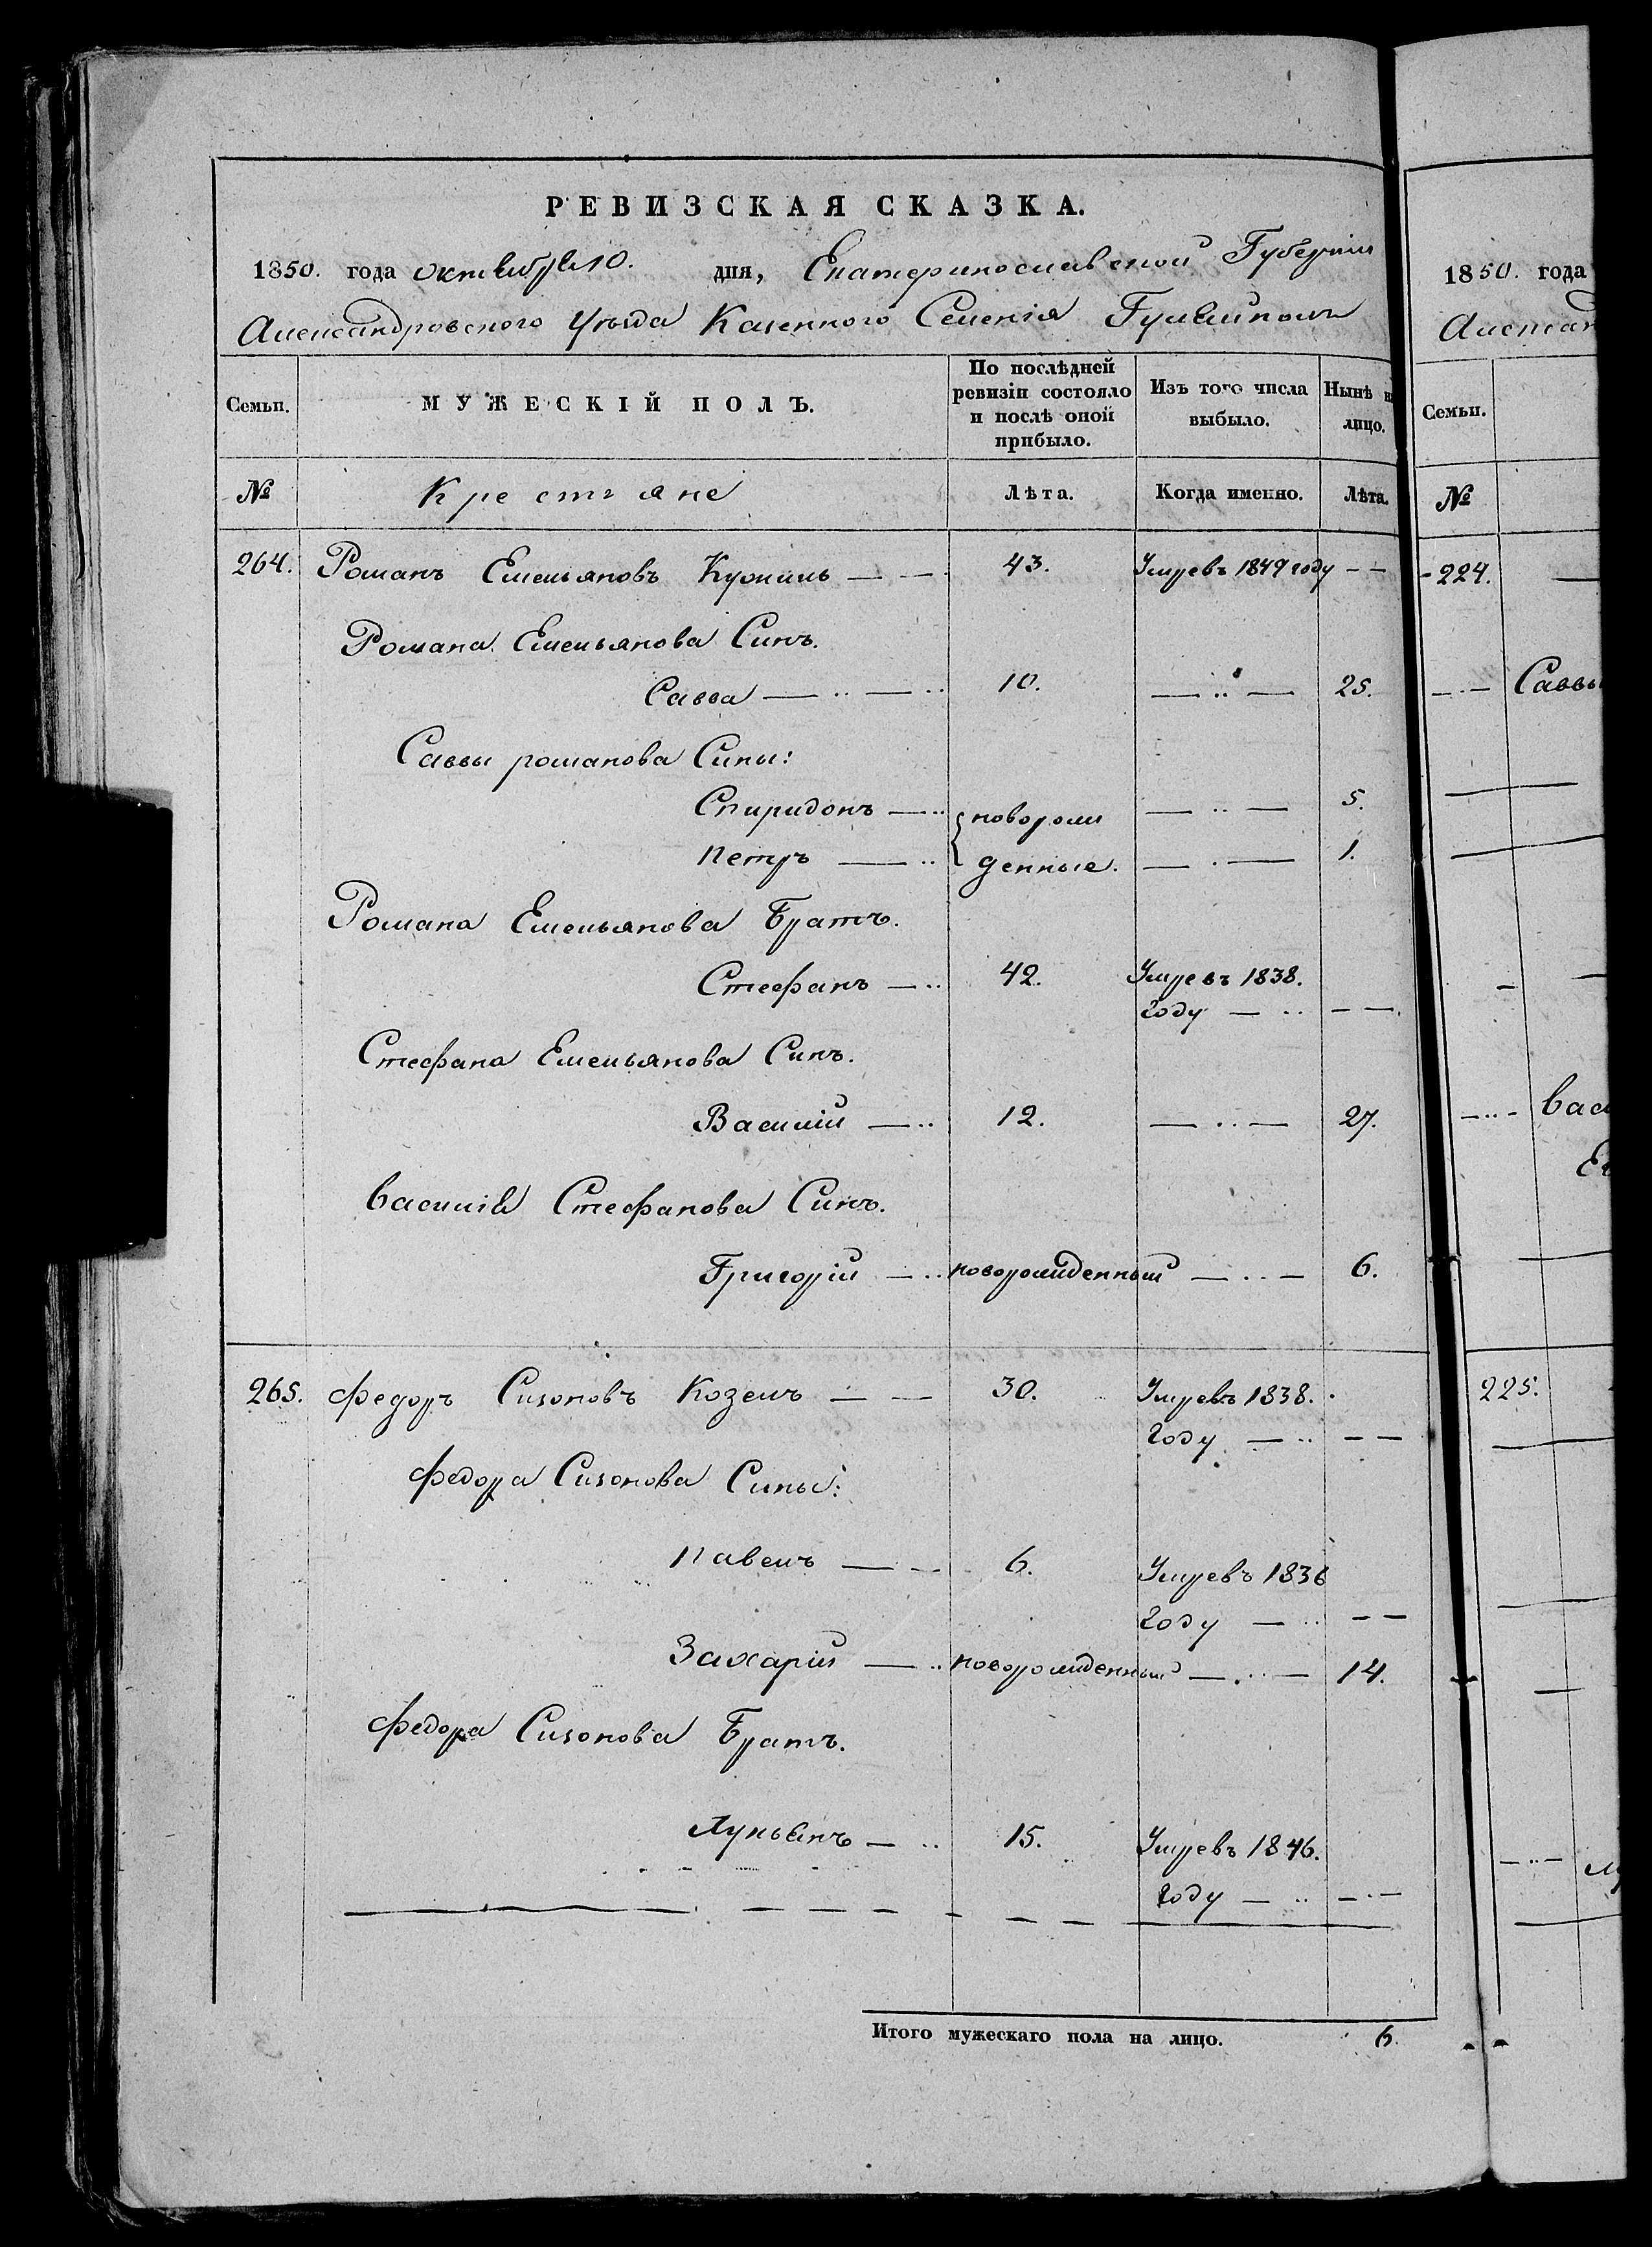 РЕВИЗСКАЯ СКАЗКА.
1850. года октября 10. дня, Екатеринославской Губернии
Александровского Уезда Казенного Селения Гуляйполя
Семьи. МУЖЕСКІЙ ПОЛЪ. По послѣдней ревизіи состояло и послѣ оной прибыло. Изъ того числа выбыло. Нынѣ на лицо.
№ Крестяне Лѣта. Когда именно. Лѣта.
264. Романъ Емельяновъ 43. Умревъ 1849 году
Романа Емельянова Синъ.
Савва 10. 25.
Саввы романова Сины:
Спиридонъ 5.
новорож
Петръ денные. 1.
Романа Емельянова Братъ.
Стефанъ 42. Умревъ 1838.
году
Стефана Емельянова Синъ.
Василий 12. 27.
Василія Стефанова Синъ.
Григорій новорожденный 6.
265. Федоръ Сизоновъ Козелъ 30. Умревъ 1838.
году
Федора Сизонова Сины:
Павелъ 6. Умревъ 1836
году
Захарій новорожденный 14.
Федора Сизонова Братъ.
Лукьянъ 15. Умревъ 1846.
году
Итого мужескаго пола на лицо. 6.
1850. года
Семьи.
№
224.
Саввы
225.